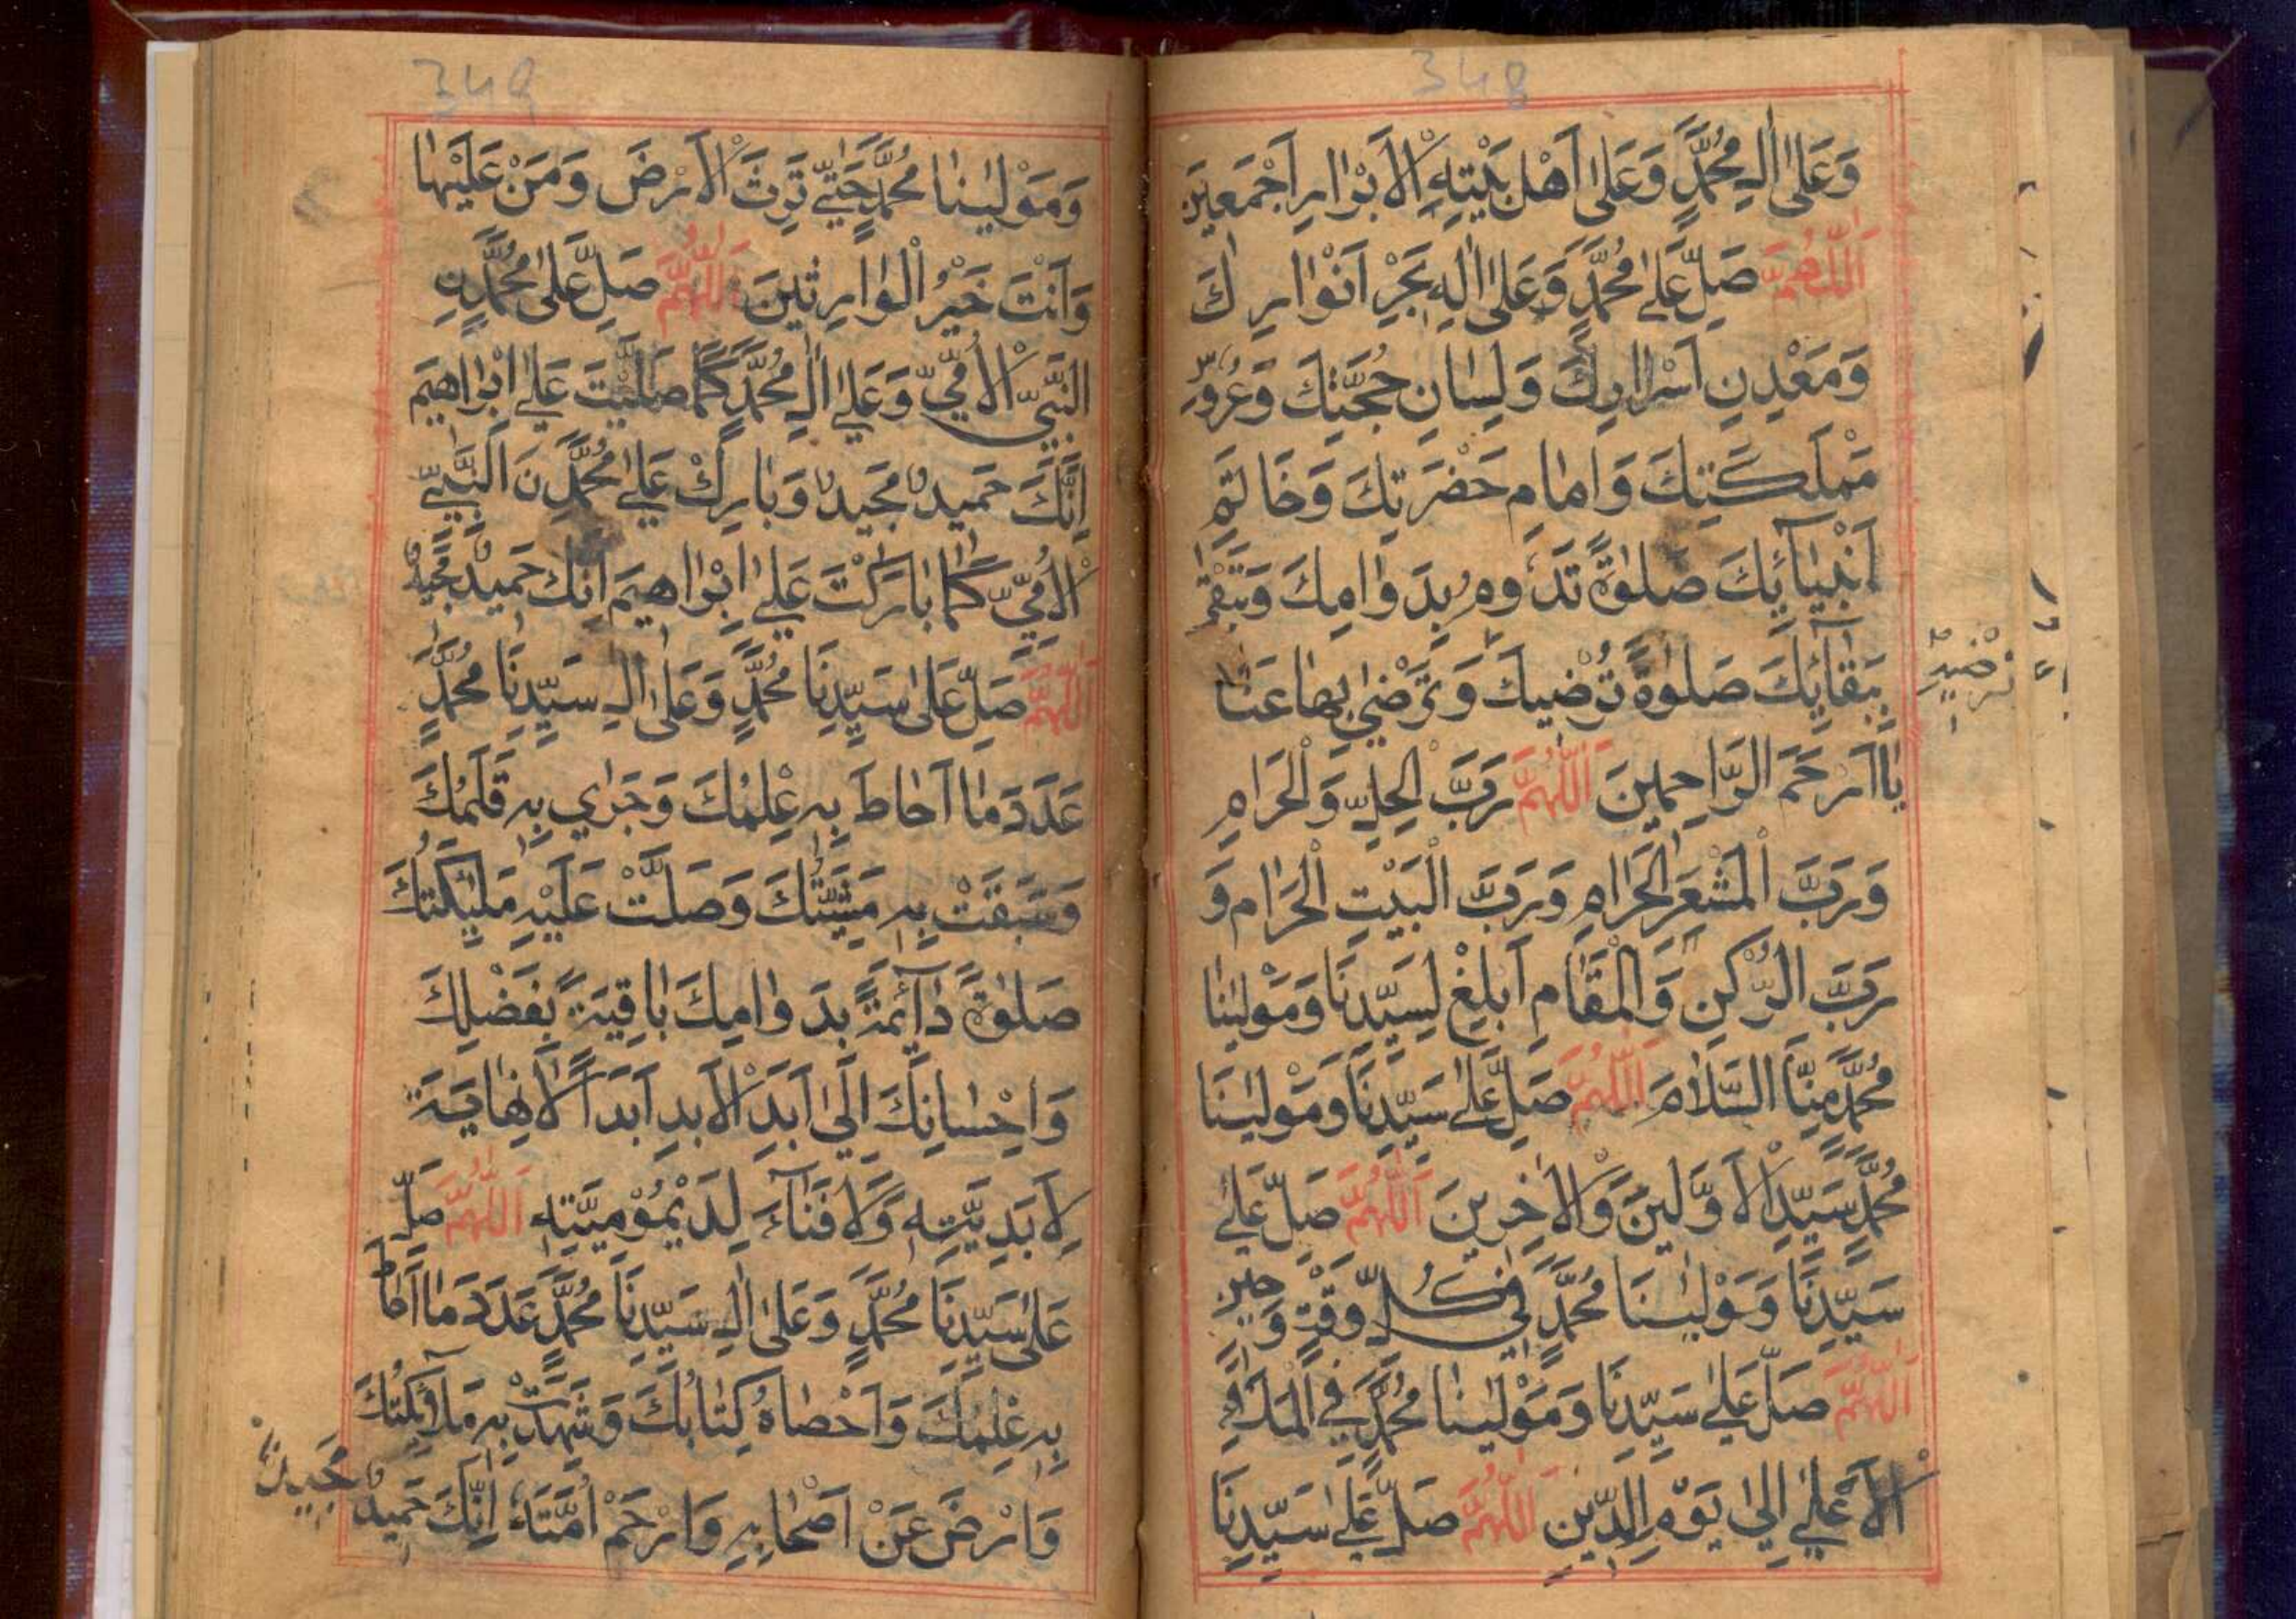 348
وَعَلٰى اٰلِ مُحَمَّدٍ وَعَلٰى اَهْلِ بَيْتِهِ الْاَبْرَارِ اَجْمَعِيْنَ
اَللّٰهُمَّ صَلِّ عَلٰى مُحَمَّدٍ وَعَلٰى اٰلِهٖ بَحْرِ اَنْوَارِكَ
وَمَعْدِنِ اَسْرَارِكَ وَلِسَانِ حُجَّتِكَ وَعُرُوْسِ
مَمْلَكَتِكَ وَاِمَامِ حَضْرَتِكَ وَخَاتَمِ
اَنْبِيَآئِكَ صَلٰوةً تَدُوْمُ بِدَوَامِكَ وَتَبْقٰى
بِبَقَآئِكَ صَلٰوةً تُرْضِيْكَ وَتَرْضٰى بِهَا عَنَّا
تُرْضِيْهِ
يَا اَرْحَمَ الرَّاحِمِيْنَ اَللّٰهُمَّ رَبَّ الْحِلِّ وَالْحَرَامِ
وَرَبَّ الْمَشْعَرِ الْحَرَامِ وَرَبَّ الْبَيْتِ الْحَرَامِ وَ
رَبَّ الرُّكْنِ وَالْمَقَامِ اَبْلِغْ لِسَيِّدِنَا وَمَوْلٰينَا
مُحَمَّدٍ مِنَّا السَّلَامَ اَللّٰهُمَّ صَلِّ عَلٰى سَيِّدِنَا وَمَوْلٰينَا
مُحَمَّدٍ سَيِّدِ الْاَوَّلِيْنَ وَالْاٰخِرِيْنَ اَللّٰهُمَّ صَلِّ عَلٰى
سَيِّدِنَا وَمَوْلٰينَا مُحَمَّدٍ فِيْ كُلِّ وَقْتٍ وَحِيْنٍ
اَللّٰهُمَّ صَلِّ عَلٰى سَيِّدِنَا وَمَوْلٰينَا مُحَمَّدٍ فِي الْمَلَاِ
الْاَعْلٰى اِلٰى يَوْمِ الدِّيْنِ اَللّٰهُمَّ صَلِّ عَلٰى سَيِّدِنَا
349
وَمَوْلٰينَا مُحَمَّدٍ حَتّٰى تَرِثَ الْاَرْضَ وَمَنْ عَلَيْهَا
وَاَنْتَ خَيْرُ الْوَارِثِيْنَ اَللّٰهُمَّ صَلِّ عَلٰى مُحَمَّدٍنِ
النَّبِيِّ الْاُمِّيِّ وَعَلٰى اٰلِ مُحَمَّدٍ كَمَا صَلَّيْتَ عَلٰى اِبْرَاهِيْمَ
اِنَّكَ حَمِيْدٌ مَجِيْدٌ وَبَارِكْ عَلٰى مُحَمَّدِنَ النَّبِيِّ
الْاُمِّيِّ كَمَا بَارَكْتَ عَلٰى اِبْرَاهِيْمَ اِنَّكَ حَمِيْدٌ مَجِيْدٌ
اَللّٰهُمَّ صَلِّ عَلٰى سَيِّدِنَا مُحَمَّدٍ وَعَلٰى اٰلِ سَيِّدِنَا مُحَمَّدٍ
عَدَدَ مَا اَحَاطَ بِهٖ عِلْمُكَ وَجَرٰى بِهٖ قَلَمُكَ
وَسَبَقَتْ بِهٖ مَشِيَّتُكَ وَصَلَّتْ عَلَيْهِ مَلٰئِكَتُكَ
صَلٰوةً دَآئِمَةً بِدَوَامِكَ بَاقِيَةً بِفَضْلِكَ
وَاِحْسَانِكَ اِلٰى اَبَدِ الْاَبَدِ اَبَدًا لَا نِهَايَةَ
لِاَبَدِيَّتِهٖ وَلَا فَنَآءَ لِدَيْمُوْمِيَّتِهٖ اَللّٰهُمَّ صَلِّ
عَلٰى سَيِّدِنَا مُحَمَّدٍ وَعَلٰى اٰلِ سَيِّدِنَا مُحَمَّدٍ عَدَدَ مَا اَحَاطَ
بِهٖ عِلْمُكَ وَاَحْصَاهُ كِتَابُكَ وَشَهِدَتْ بِهٖ مَلَآئِكَتُكَ
وَارْضَ عَنْ اَصْحَابِهٖ وَارْحَمْ اُمَّتَهٗ اِنَّكَ حَمِيْدٌ مَجِيْدٌ